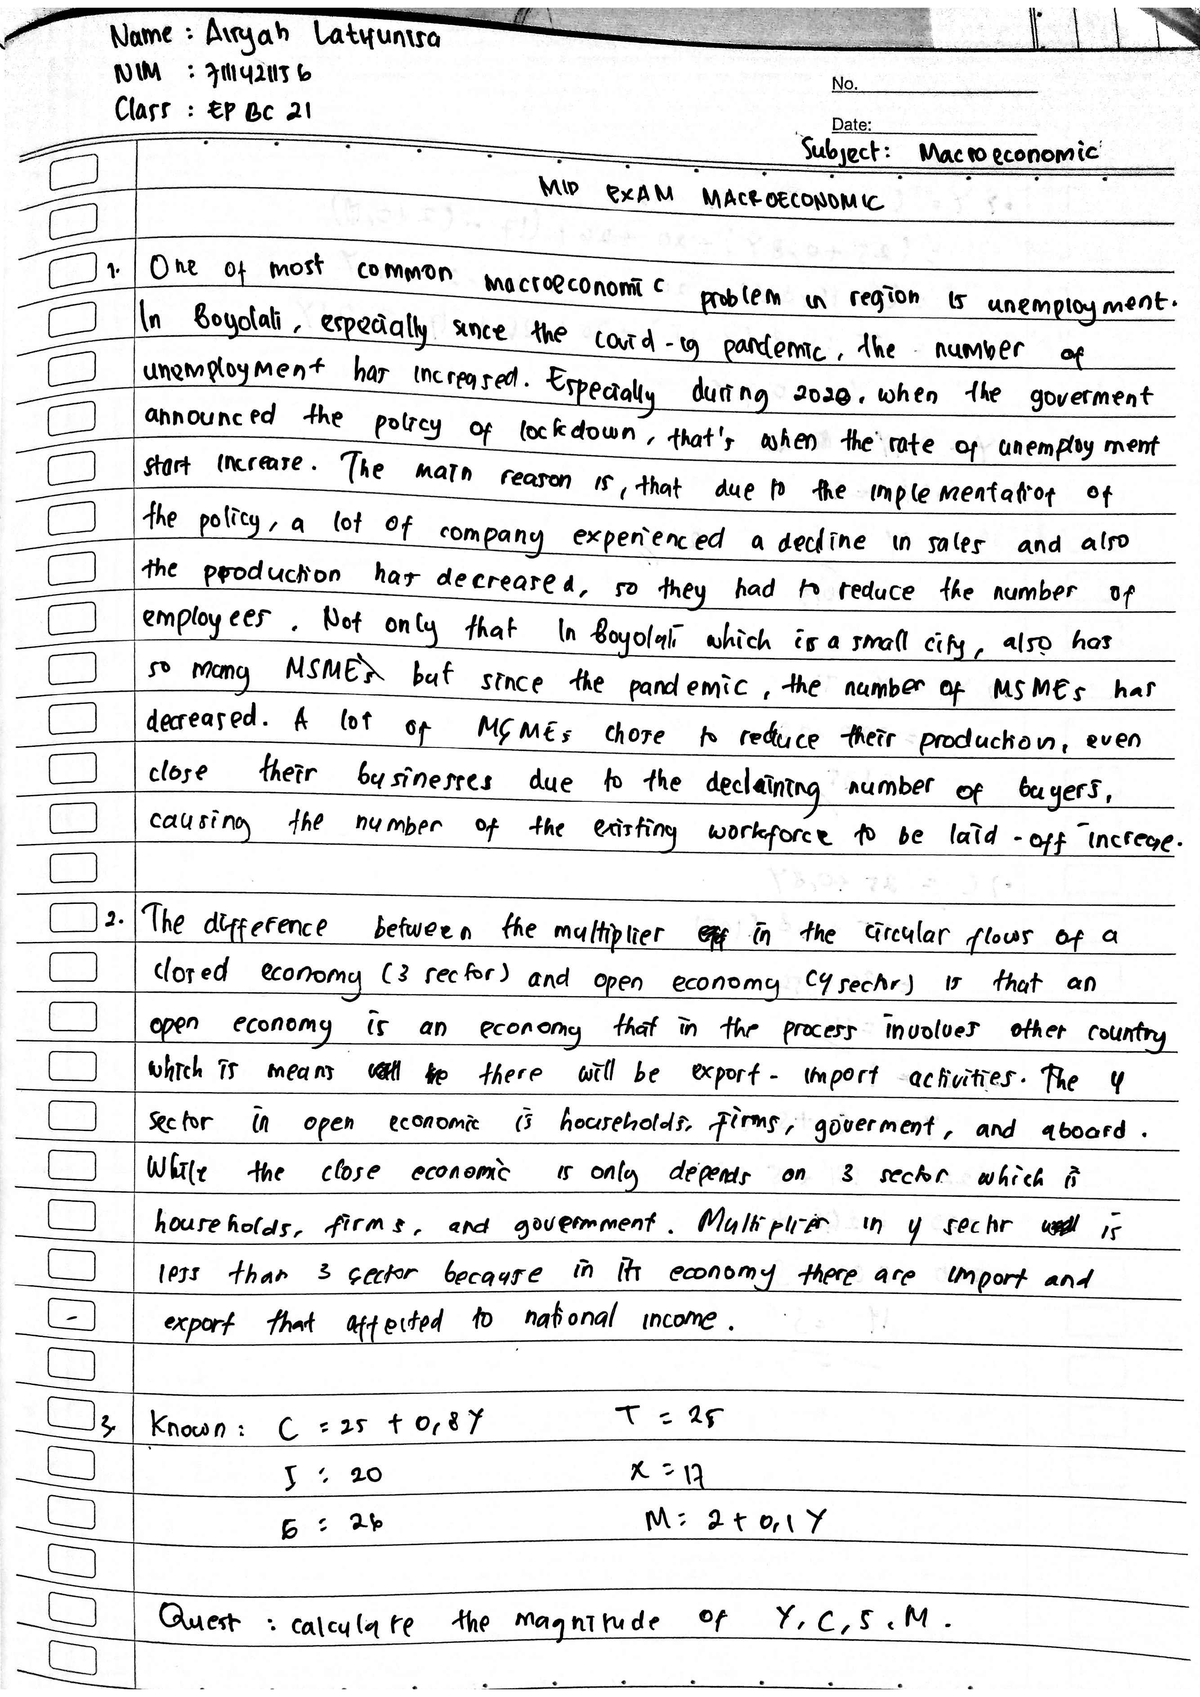 Name : Airyah Latifunisa
NIM : 7111421156
Class : EP BC 21
No.
Date:
Subject: Macroeconomic
MID EXAM MACROECONOMIC
1. One of most common macroeconomic problem in region is unemployment.
In Boyolali, especially since the covid-19 pandemic, the number of
unemployment has increased. Especially during 2020. when the goverment
announced the policy of lockdown, that's when the rate of unemployment
start increase. The main reason is, that due to the implementation of
the policy, a lot of company experienced a decline in sales and also
the production has decreased, so they had to reduce the number of
employees. Not only that In Boyolali which is a small city, also has
so many MSMEs but since the pandemic, the number of MSMEs has
decreased. A lot of MSMEs chose to reduce their production, even
close their businesses due to the declaining number of buyers,
causing the number of the existing workforce to be laid-off increase.
2. The difference between the multiplier in the circular flows of a
closed economy (3 sector) and open economy (4 sector) is that an
open economy is an economy that in the process involves other country
which is means there will be export - import activities. The 4
sector in open economic is households, firms, goverment, and aboard.
While the close economic is only depends on 3 sector which is
households, firms, and government. Multiplier in 4 sector is
less than 3 sector because in its economy there are import and
export that affected to national income.
3. Known : C = 25 + 0,8Y T = 25
I : 20 X = 17
G : 26 M : 2 + 0,1 Y
Quest : calculate the magnitude of Y, C, S, M.